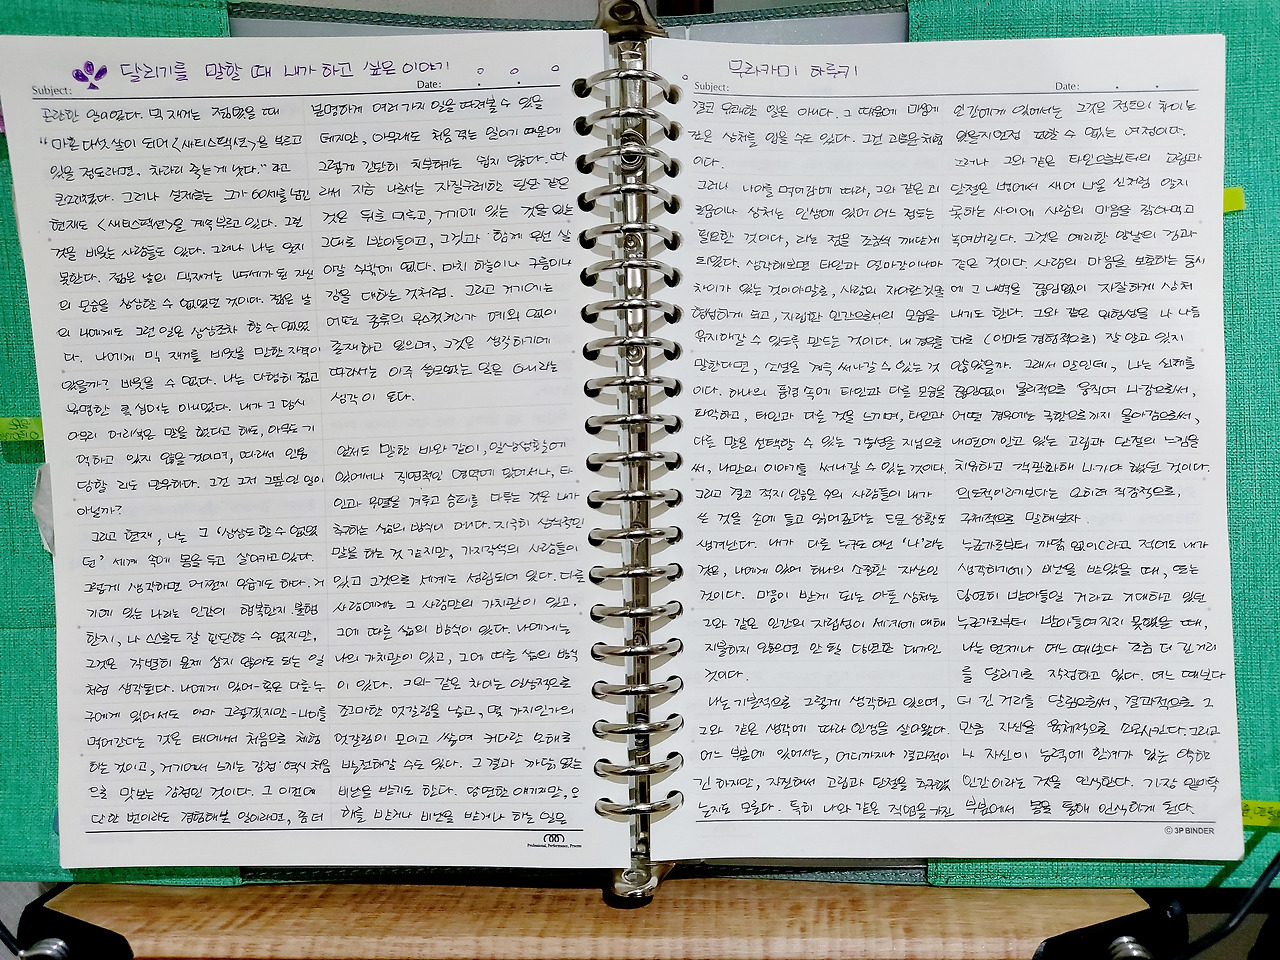 달리기를 말할 때 내가 하고 싶은 이야기
Subject:
Date:
곤란한 일이었다. 믹 재거는 젊었을 때
"마흔 다섯 살이 되어 <새티스팩션>을 부르고
있을 정도라면, 차라리 죽는 게 낫다." 라고
큰소리쳤다. 그러나 실제로는 그가 60세를 넘긴
현재도 <새티스팩션>을 계속 부르고 있다. 그런
것을 비웃는 사람들도 있다. 그러나 나는 웃지
못한다. 젊은 날의 믹 재거는 45세가 된 자신
의 모습을 상상할 수 없었던 것이다. 젊은 날
의 나에게도 그런 일은 상상조차 할 수 없었
다. 나에게 믹 재거를 비웃을 만한 자격이
있을까? 비웃을 수 없다. 나는 다행히 젊고
유명한 록 싱어는 아니었다. 내가 그 당시
아무리 어리석은 말을 했다고 해도, 아무도 기
억하고 있지 않을 것이며, 따라서 인용
당할 리도 만무하다. 그건 그저 그뿐인 일이
아닐까?
그리고 현재, 나는 그 '상상도 할 수 없었
던' 세계 속에 몸을 두고 살아가고 있다.
그렇게 생각하면 어쩐지 우습기도 하다. 거
기에 있는 나라는 인간이 행복한지 불행
한지, 나 스스로도 잘 판단할 수 없지만,
그것은 각별히 문제 삼지 않아도 되는 일
처럼 생각된다. 나에게 있어-혹은 다른 누
구에게 있어서도 아마 그렇겠지만-나이를
먹어간다는 것은 태어나서 처음으로 체험
하는 것이고, 거기에서 느끼는 감정 역시 처음
으로 맛보는 감정인 것이다. 그 이전에
단 한 번이라도 경험해본 일이라면, 좀 더
분명하게 여러 가지 일을 따져볼 수 있을
테지만, 아무래도 처음 겪는 일이기 때문에
그렇게 간단히 치부하기는 쉽지 않다. 따
라서 지금 나로서는 자질구레한 판단 같은
것은 뒤로 미루고, 거기에 있는 것을 있는
그대로 받아들이고, 그것과 함께 우선 살
아갈 수밖에 없다. 마치 하늘이나 구름이나
강을 대하는 것처럼. 그리고 거기에는
어떤 종류의 우스꽝스러움이 예외 없이
존재하고 있으며, 그것은 생각하기에
따라서는 아주 쓸모없는 일은 아니라는
생각이 든다.
언제도 말한 바와 같이, 일상생활에
있어서나 직업적인 영역에 있어서나, 타
인과 우열을 겨루고 승패를 다투는 것은 내가
추구하는 삶의 방식이 아니다. 지극히 상식적인
말을 하는 것 같지만, 가지각색의 사람들이
있고 그것으로 세계는 성립되어 있다. 다른
사람에게는 그 사람만의 가치관이 있고,
그에 따른 삶의 방식이 있다. 나에게는
나의 가치관이 있고, 그에 따른 삶의 방식
이 있다. 그와 같은 차이는 일상적으로
조그마한 엇갈림을 낳고, 몇 가지인가의
엇갈림이 모이고 쌓여 커다란 오해로
발전해갈 수도 있다. 그 결과 까닭 없는
비난을 받기도 한다. 당연한 얘기지만, 오
해를 받거나 비난을 받거나 하는 일은
Professional, Performance, Process
무라카미 하루키
Subject:
Date:
결코 유쾌한 일은 아니다. 그 때문에 마음에
깊은 상처를 입을 수도 있다. 그건 괴로운 체험
이다.
그러나 나이를 먹어감에 따라, 그와 같은 괴
로움이나 상처는 인생에 있어 어느 정도는
필요한 것이다, 라는 점을 조금씩 깨닫게
되었다. 생각해보면 타인과 얼마간이나마
차이가 있는 것이야말로, 사람의 자아란 것을
형성하게 되고, 자립한 인간으로서의 모습을
유지해갈 수 있도록 만드는 것이다. 내 경우를
말한다면, 소설을 계속 써나갈 수 있는 것
이다. 하나의 풍경 속에 타인과 다른 모습을
파악하고, 타인과 다른 것을 느끼며, 타인과
다른 말을 선택할 수 있는 가능성을 지님으로
써, 나만의 이야기를 써나갈 수 있는 것이다.
그리고 결코 적지 않은 수의 사람들이 내가
쓴 것을 손에 들고 읽어준다는 드문 상황도
생겨난다. 내가 다른 누구도 아닌 '나'라는
것은, 나에게 있어 하나의 소중한 자산인
것이다. 마음이 받게 되는 아픈 상처는
그와 같은 인간의 자립성이 세계에 대해
지불하지 않으면 안 될 당연한 대가인
것이다.
나는 기본적으로 그렇게 생각하고 있으며,
그와 같은 생각에 따라 인생을 살아왔다.
어느 부분에 있어서는, 어디까지나 결과적이
긴 하지만, 자진해서 고립과 단절을 추구했
는지도 모른다. 특히 나와 같은 직업을 가진
인간에게 있어서는 그것은 정도의 차이는
있을지언정 피할 수 없는 여정이다.
그러나 그와 같은 타인으로부터의 고립과
단절은 병에서 새어 나온 산처럼 알지
못하는 사이에 사람의 마음을 잠식하고
녹여버린다. 그것은 예리한 양날의 검과
같은 것이다. 사람의 마음을 보호하는 동시
에 그 내벽을 끊임없이 자잘하게 상처
내기도 한다. 그와 같은 위험성을 나 나름
대로 (아마도 경험적으로) 잘 알고 있지
않았을까. 그래서 말인데, 나는 신체를
끊임없이 물리적으로 움직여 나감으로써,
어떤 경우에는 극한으로까지 몰아감으로써,
내면에 안고 있는 고립과 단절의 느낌을
치유하고 객관화해 나가야 했던 것이다.
의도적이라기보다는 오히려 직감적으로,
구체적으로 말해보자.
누군가로부터 까닭 없이(라고 적어도 내가
생각하기에) 비난을 받았을 때, 또는
당연히 받아들일 거라고 기대하고 있던
누군가로부터 받아들여지지 못했을 때,
나는 언제나 여느 때보다 조금 더 긴 거리
를 달리기로 작정하고 있다. 여느 때보다
더 긴 거리를 달림으로써, 결과적으로 그
만큼 자신을 육체적으로 소모시킨다. 그리고
나 자신이 능력에 한계가 있는 약한
인간이라는 것을 인식한다. 가장 밑바닥
부분에서 몸을 통해 인식하게 된다.
© 3P BINDER